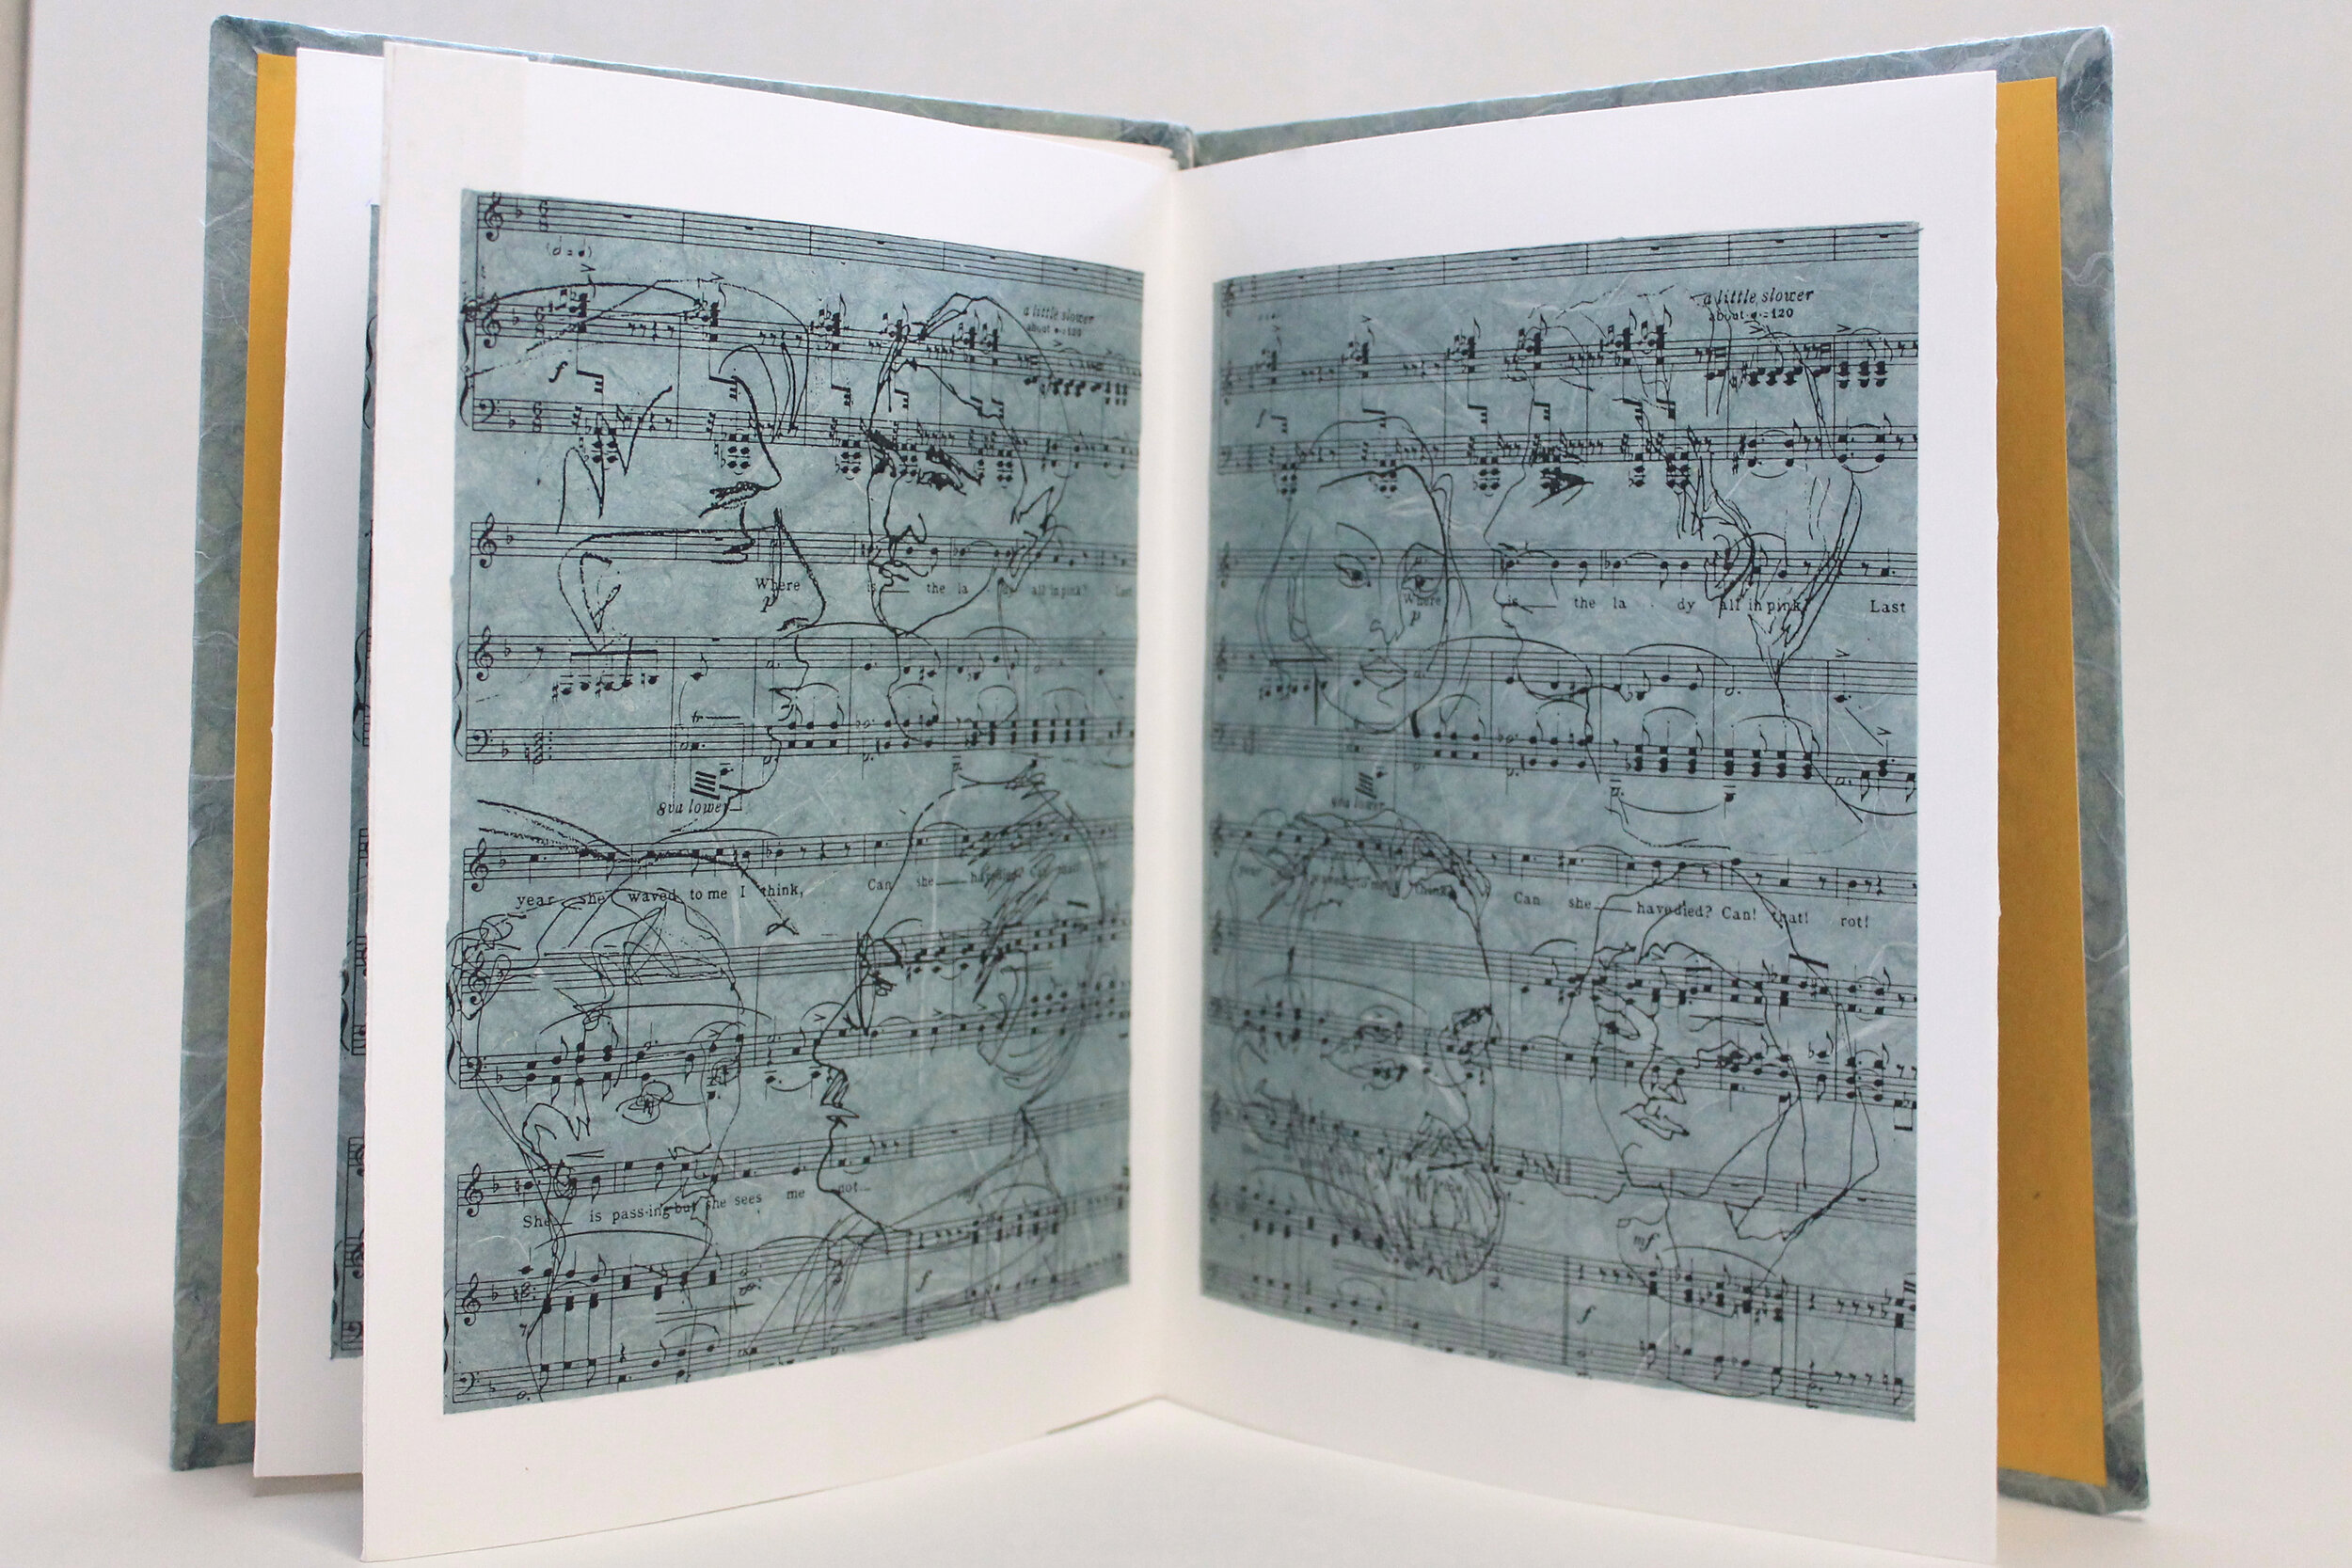 a little slower
about ♩.=120
f
Where is the la dy all in pink? Last
p
tr
8va lower
year she waved to me I think, Can she havedied? Can! that!
She is pass-ing but she sees me not
f
a little slower
about ♩.=120
f
Where is the la dy all in pink? Last
p
8va lower
year waved to me I think, Can she havedied? Can! that! rot!
mf
f